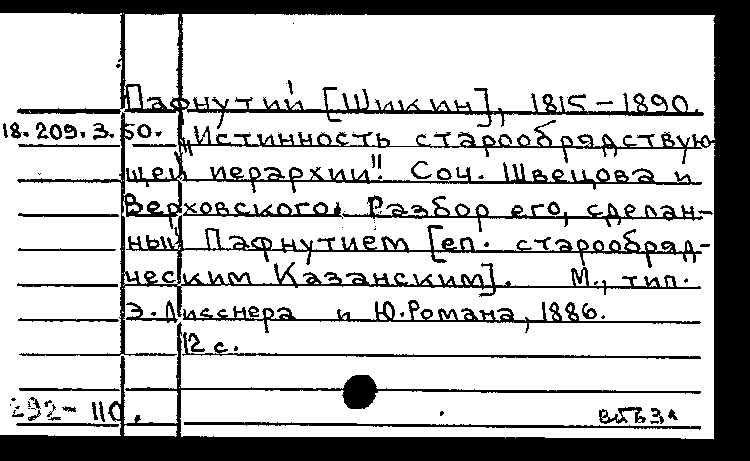 Пафнутий [Шикин], 1815-1890.
18.209.3.50. „Истинность старообрядствую-
щей иерархии". Соч. Швецова и
Верховского. Разбор его, сделан-
ный Пафнутием [еп. старообряд-
ческим Казанским]. М., тип.
Э. Лисснера и Ю. Романа, 1886.
12 с.
292-110.